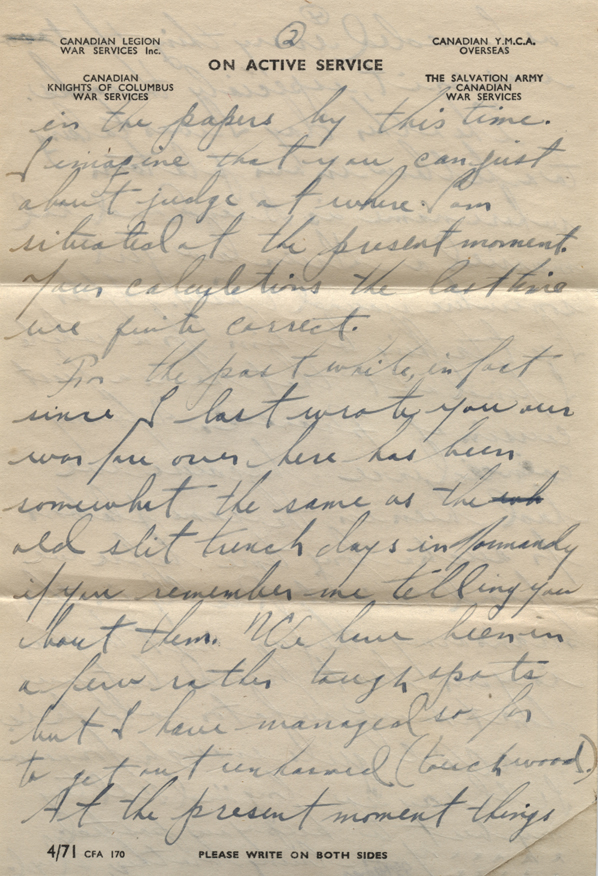 ②
CANADIAN LEGION
WAR SERVICES Inc.
CANADIAN
KNIGHTS OF COLUMBUS
WAR SERVICES
ON ACTIVE SERVICE
CANADIAN Y.M.C.A.
OVERSEAS
THE SALVATION ARMY
CANADIAN
WAR SERVICES
in the papers by this time.
I imagine that you can just
about judge at where I am
situated at the present moment.
Your calculations the last time
were finite correct.
For the past while, in fact
since I last wrote you our
warfare over here has been
somewhat the same as the
old slit trench days in Normandy
if you remember me telling you
about them. We have been in
a few rather tough spots
but I have managed so far
to get out unharmed (touch wood.)
At the present moment things
4/71 CFA 170
PLEASE WRITE ON BOTH SIDES